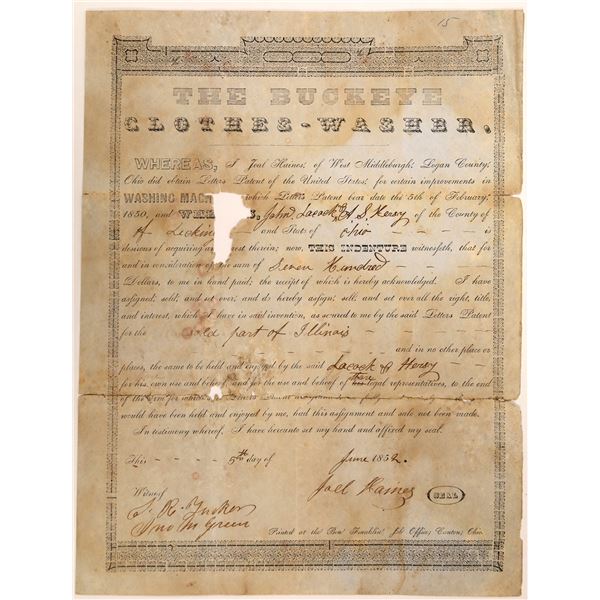 15
THE BUCKEYE
CLOTHES-WASHER.
WHEREAS, I Joel Haines; of West Middleburgh; Logan County;
Ohio did obtain Letters Patent of the United States; for certain improvements in
WASHING MAC which Letters Patent bear date the 5th of February;
1850, and WHE S, John Lacock & A S. Hervy of the County of
of Licking and State of Ohio is
desirous of acquiring an rest therein; now, THIS INDENTURE witnesseth, that for
and in consideration of the sum of Seven Hundred
Dollars, to me in hand paid; the receipt of which is hereby acknowledged. I have
assigned; sell; and set over; and do hereby assign; sell; and set over all the right, title,
and interest, which I have in said invention, as scured to me by the said Letters Patent
for the sold part of Illinois
and in no other place or
places, the same to be held and enjoyed by the said Lacock & Hervy
for his, own use and behoof and for the use and behoof of his their legal representatives, to the end
of the term for which Letters Patent
would have been held and enjoyed by me, had this assignment and sale not been made.
In testimony whereof, I have hereunto set my hand and affixed my seal.
This 5th day of June 1852.
Witness Joel Haines SEAL
J. R. Tucker
Jno M Green
Printed at the Ben Franklin Job Office; Canton; Ohio